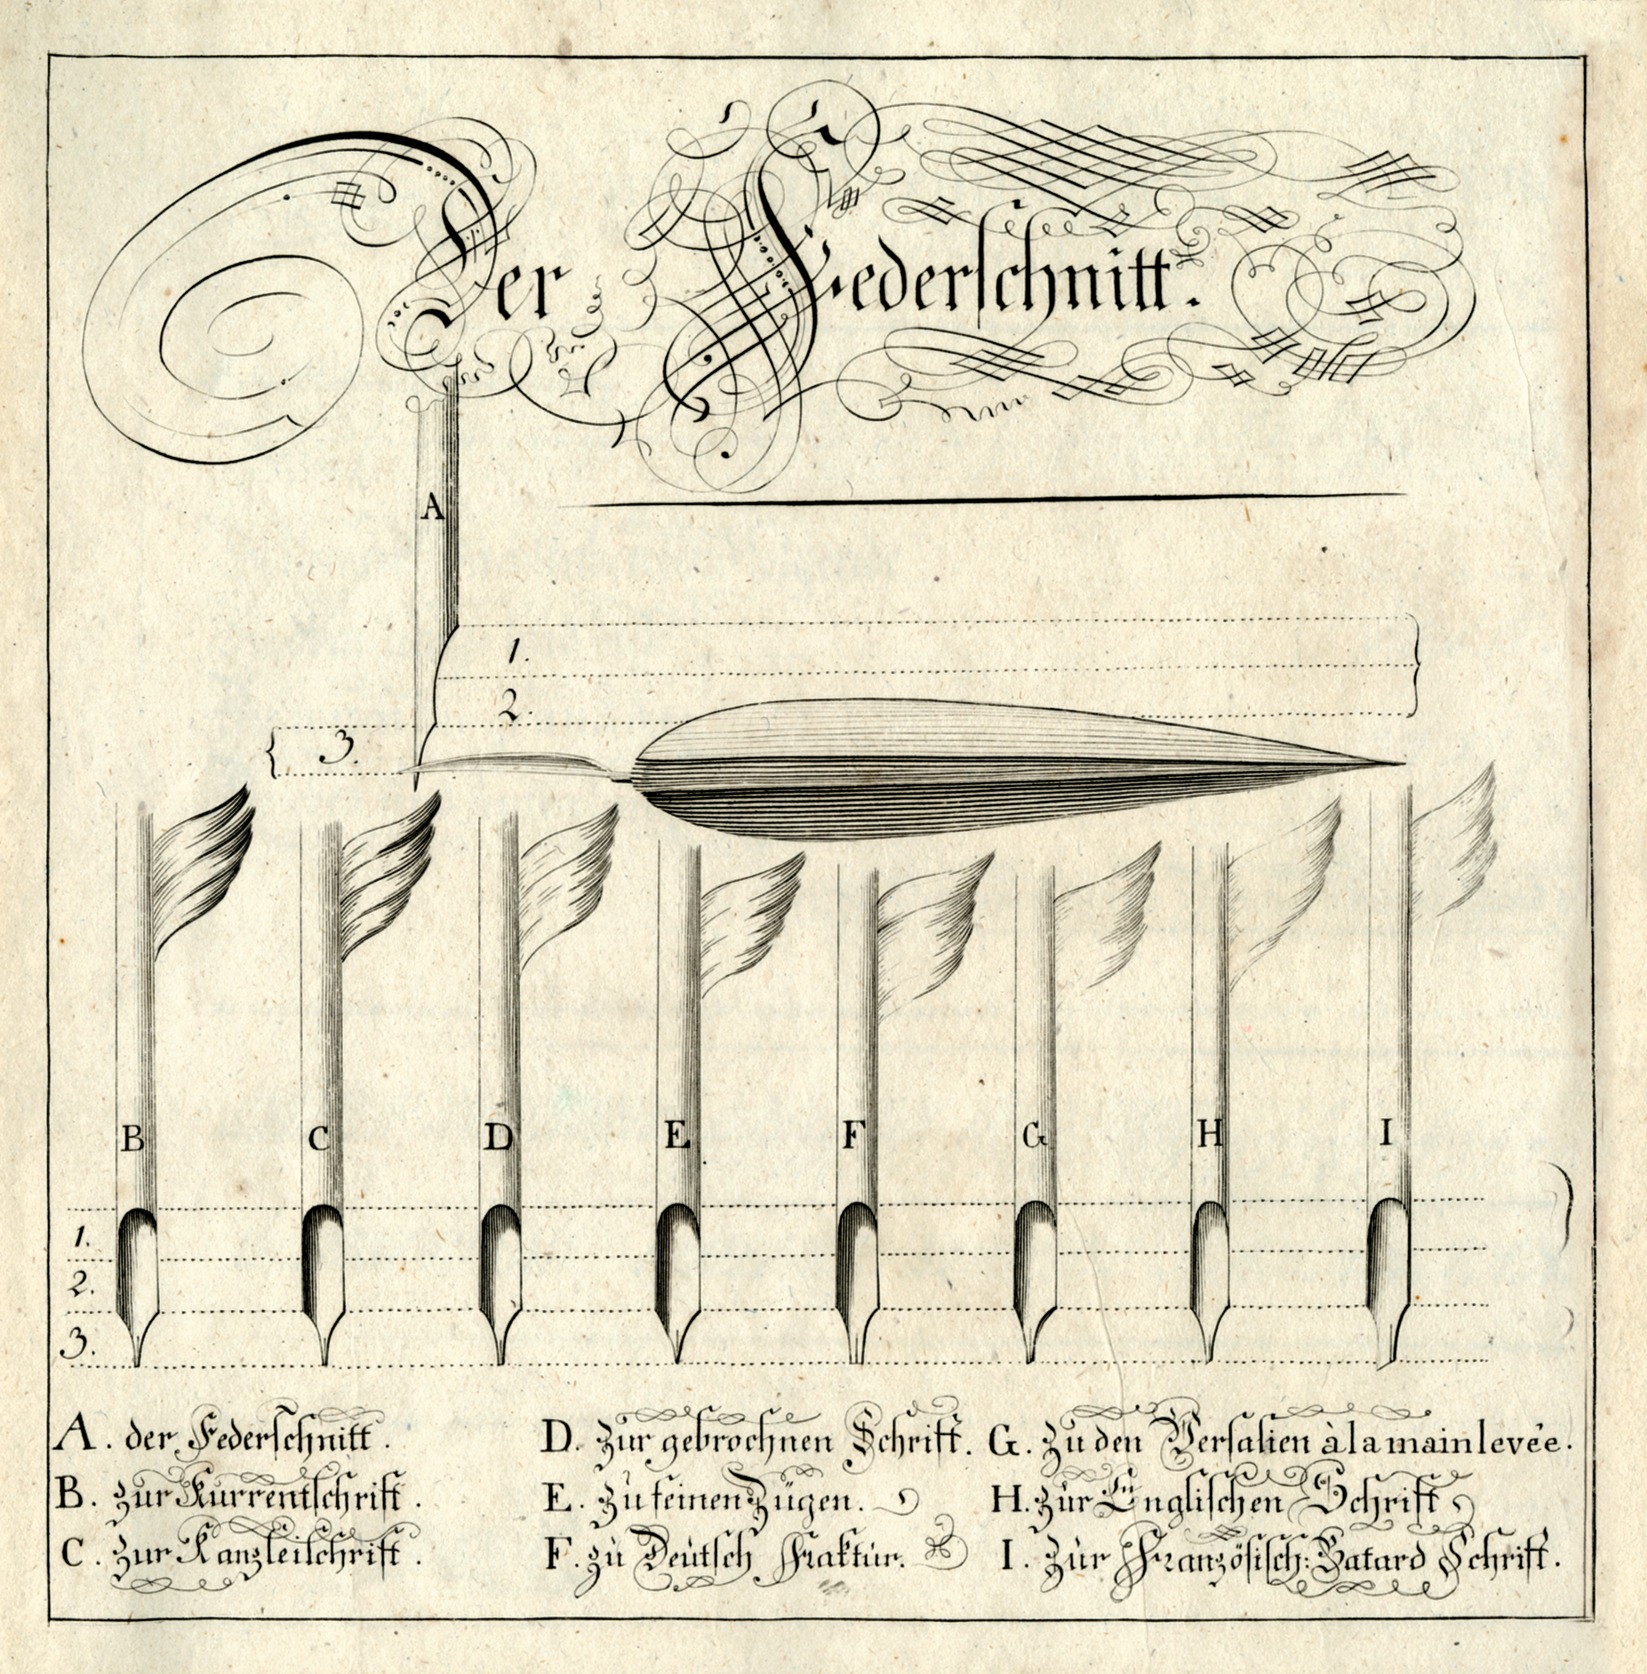 Der Federschnitt.
A
1.
2.
3.
B C D E F G H I
1.
2.
3.
A. der Federschnitt.
B. zur Kurrentschrift.
C. zur Kanzleischrift.
D. zur gebrochnen Schrift.
E. zu feinen Zügen.
F. zu Deutsch Fraktur.
G. zu den Versalien à la main levée.
H. zur Englischen Schrift
I. zur Französisch: Batard Schrift.